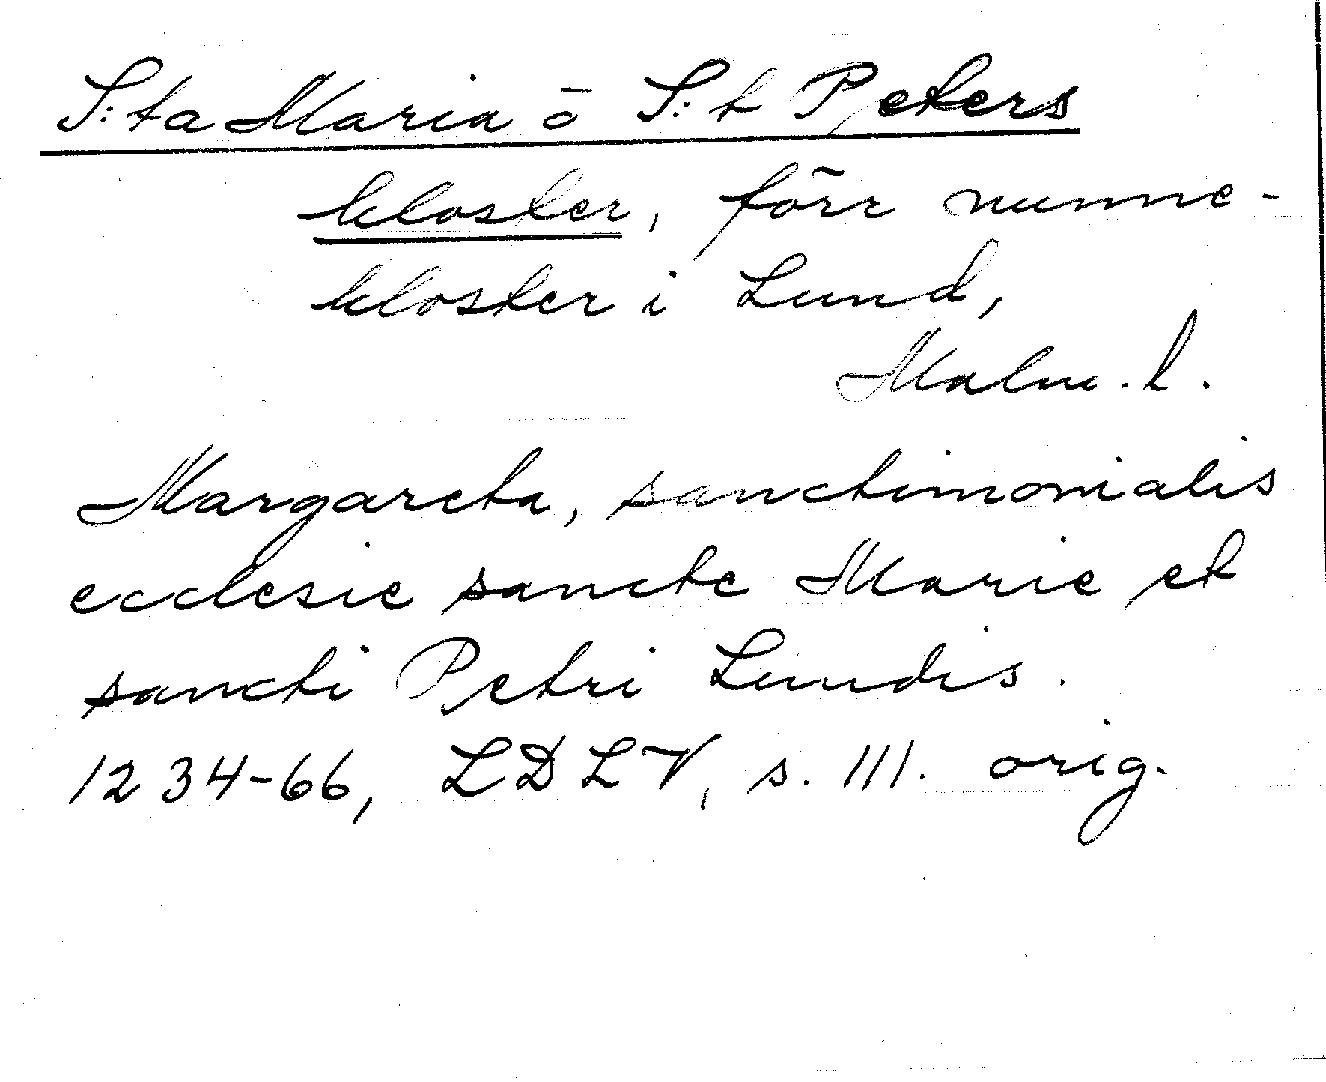 S:ta Maria o S:t Peters
kloster, förr nunne-
kloster i Lund,
Malm. l.
Margareta, sanctimonialis
ecclesie sancte Marie et
sancti Petri Lundis.
1234-66, LDLV, s. 111. orig.